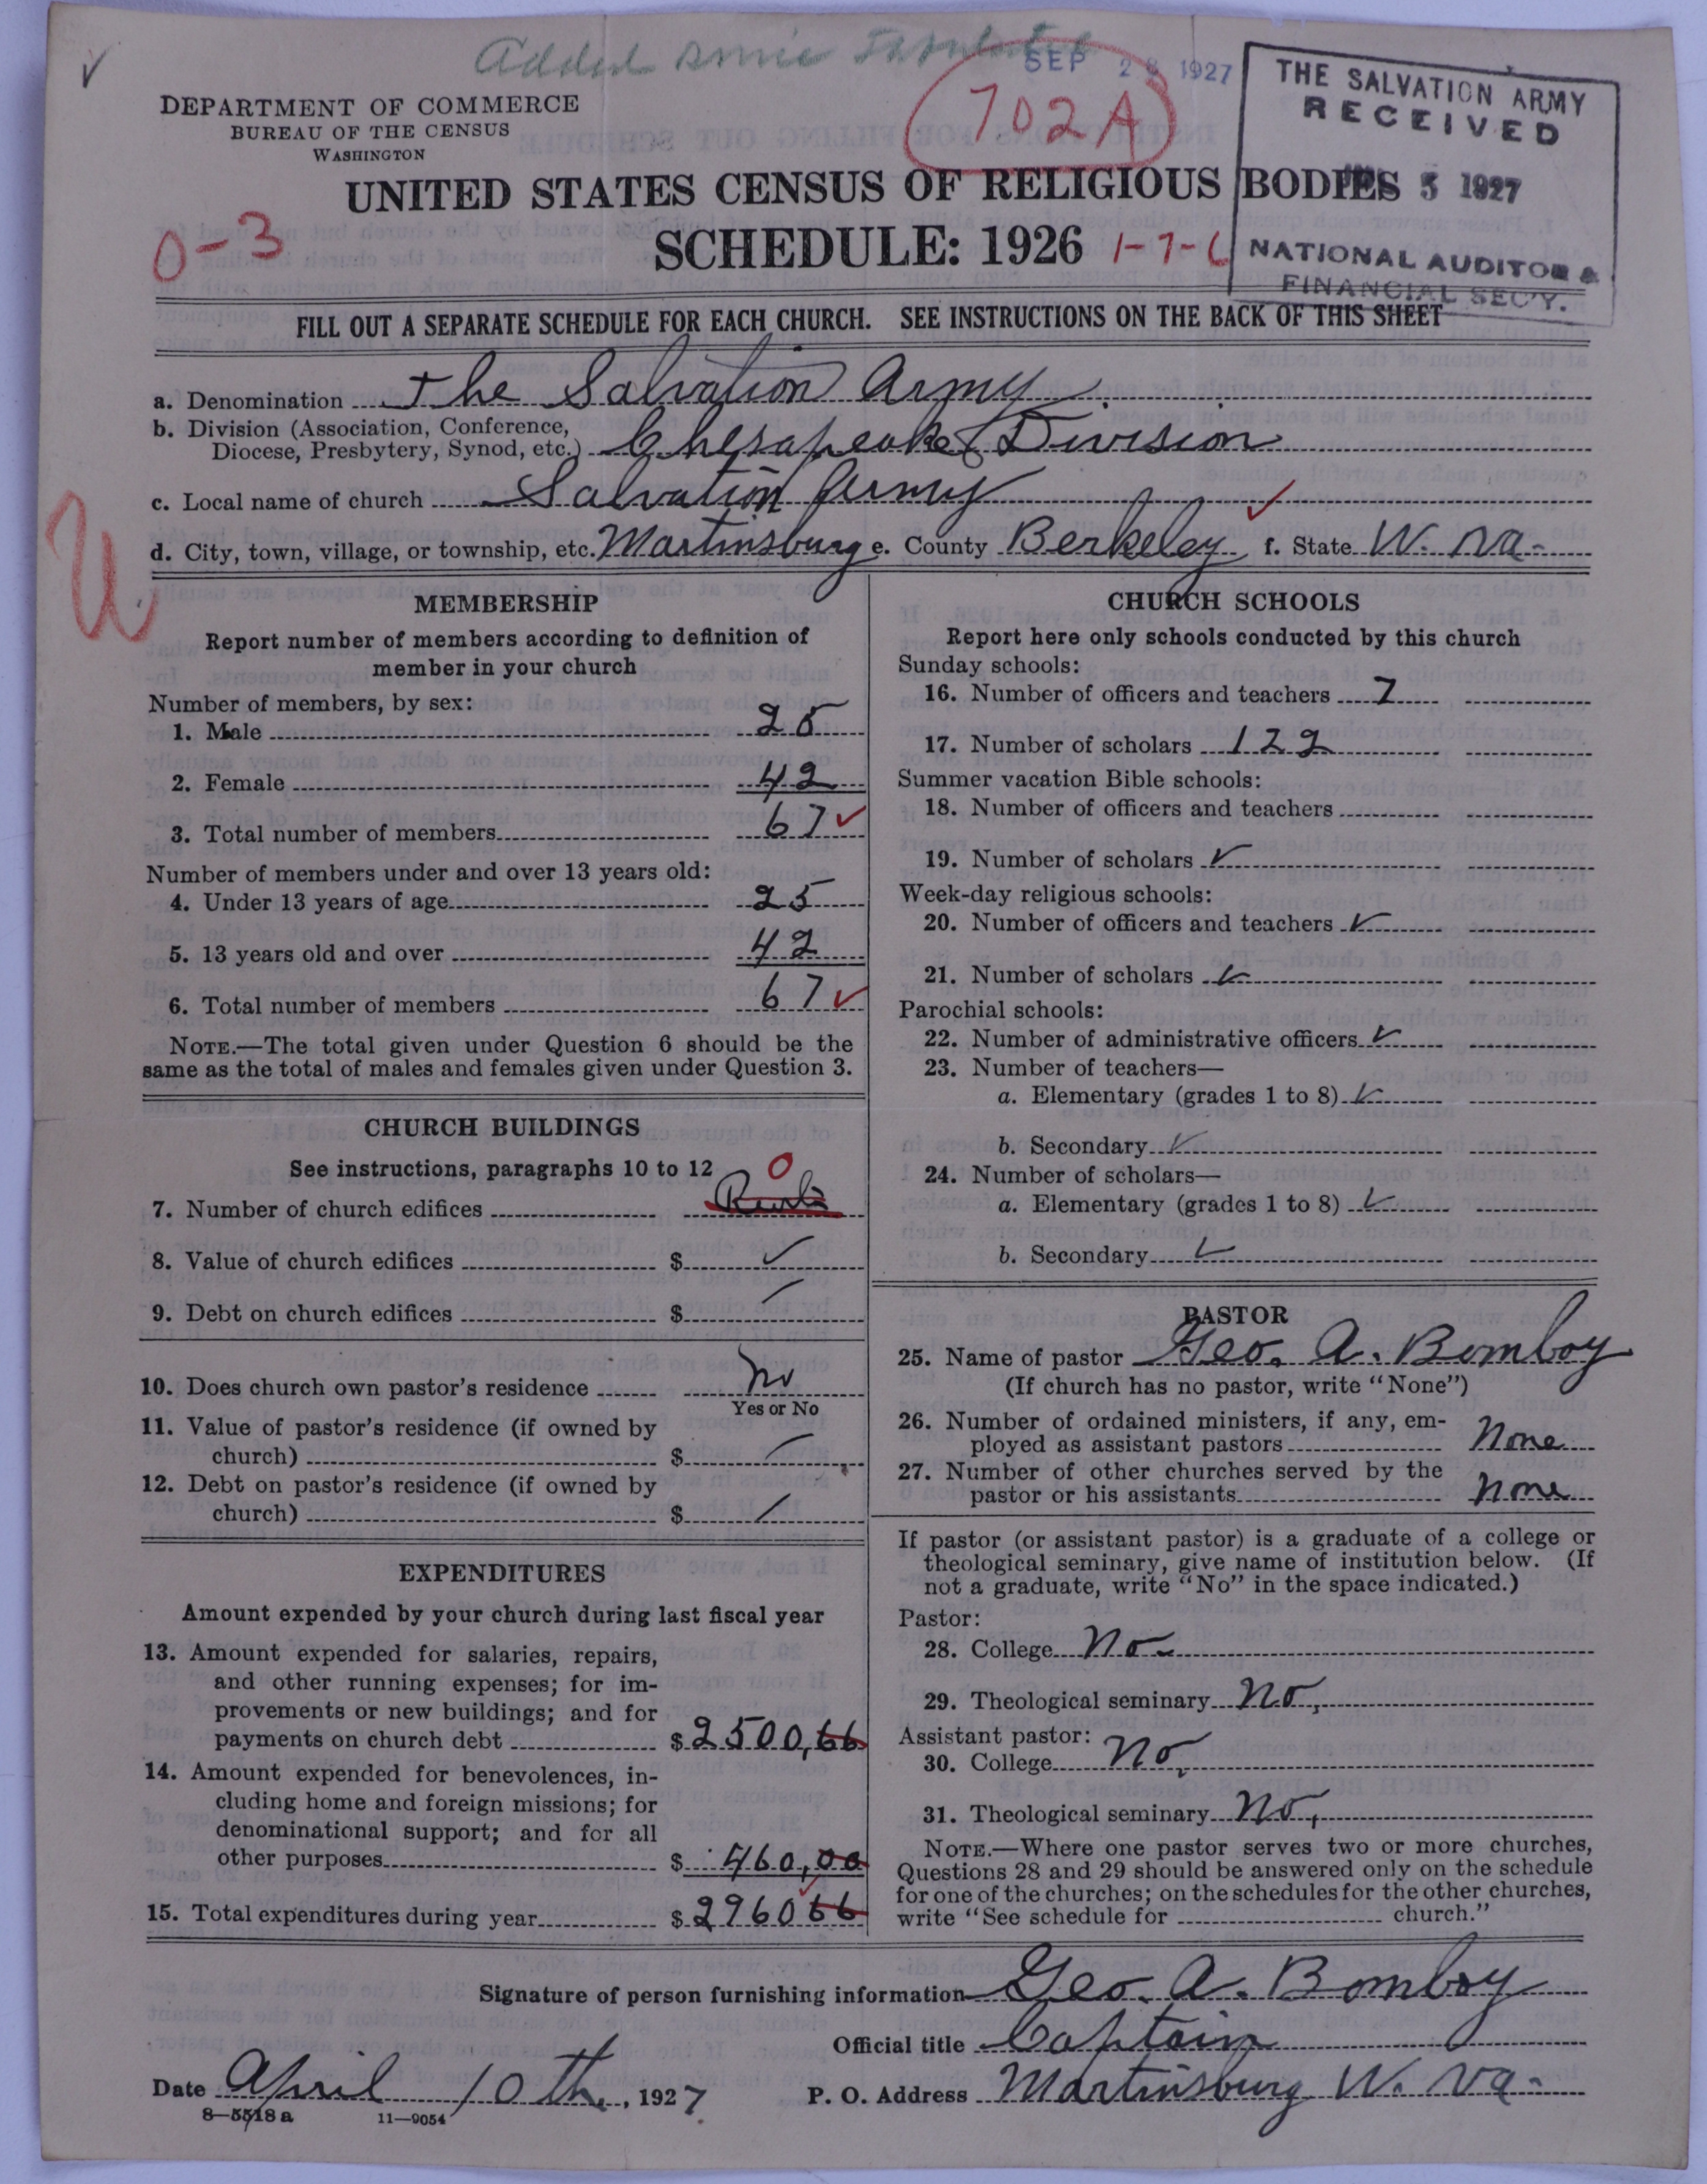 Added since Tabulated
SEP 28 1927
702A
THE SALVATION ARMY
RECEIVED
5 1927
NATIONAL AUDITOR &
FINANCIAL SEC'Y.
DEPARTMENT OF COMMERCE
BUREAU OF THE CENSUS
WASHINGTON
UNITED STATES CENSUS OF RELIGIOUS BODIES
0-3
SCHEDULE: 1926 1-7-6
FILL OUT A SEPARATE SCHEDULE FOR EACH CHURCH. SEE INSTRUCTIONS ON THE BACK OF THIS SHEET
a. Denomination The Salvation Army.
b. Division (Association, Conference,
Diocese, Presbytery, Synod, etc.) Chesapeake Division
c. Local name of church Salvation Army
d. City, town, village, or township, etc. Martinsburg e. County Berkeley f. State W. Va-
U
MEMBERSHIP
Report number of members according to definition of
member in your church
Number of members, by sex:
1. Male 25
2. Female 42
3. Total number of members 67 ✓
Number of members under and over 13 years old:
4. Under 13 years of age 25
5. 13 years old and over 42
6. Total number of members 67 ✓
NOTE.—The total given under Question 6 should be the
same as the total of males and females given under Question 3.
CHURCH BUILDINGS
See instructions, paragraphs 10 to 12 0
7. Number of church edifices
8. Value of church edifices $ ✓
9. Debt on church edifices $
10. Does church own pastor's residence No
Yes or No
11. Value of pastor's residence (if owned by
church) $
12. Debt on pastor's residence (if owned by
church) $
EXPENDITURES
Amount expended by your church during last fiscal year
13. Amount expended for salaries, repairs,
and other running expenses; for im-
provements or new buildings; and for
payments on church debt $2500,66
14. Amount expended for benevolences, in-
cluding home and foreign missions; for
denominational support; and for all
other purposes $ 460,00
15. Total expenditures during year $2960 66
CHURCH SCHOOLS
Report here only schools conducted by this church
Sunday schools:
16. Number of officers and teachers 7
17. Number of scholars 122
Summer vacation Bible schools:
18. Number of officers and teachers
19. Number of scholars ✓
Week-day religious schools:
20. Number of officers and teachers ✓
21. Number of scholars ✓
Parochial schools:
22. Number of administrative officers ✓
23. Number of teachers—
a. Elementary (grades 1 to 8) ✓
b. Secondary ✓
24. Number of scholars—
a. Elementary (grades 1 to 8) ✓
b. Secondary ✓
PASTOR
25. Name of pastor Geo. A. Bomboy
(If church has no pastor, write "None")
26. Number of ordained ministers, if any, em-
ployed as assistant pastors None
27. Number of other churches served by the
pastor or his assistants None
If pastor (or assistant pastor) is a graduate of a college or
theological seminary, give name of institution below. (If
not a graduate, write "No" in the space indicated.)
Pastor:
28. College No
29. Theological seminary No,
Assistant pastor:
30. College No,
31. Theological seminary No,
NOTE.—Where one pastor serves two or more churches,
Questions 28 and 29 should be answered only on the schedule
for one of the churches; on the schedules for the other churches,
write "See schedule for church."
Signature of person furnishing information Geo. A. Bomboy
Official title Captain
Date April 10th, 1927 P. O. Address Martinsburg W. Va-
8—5518 a 11—9054